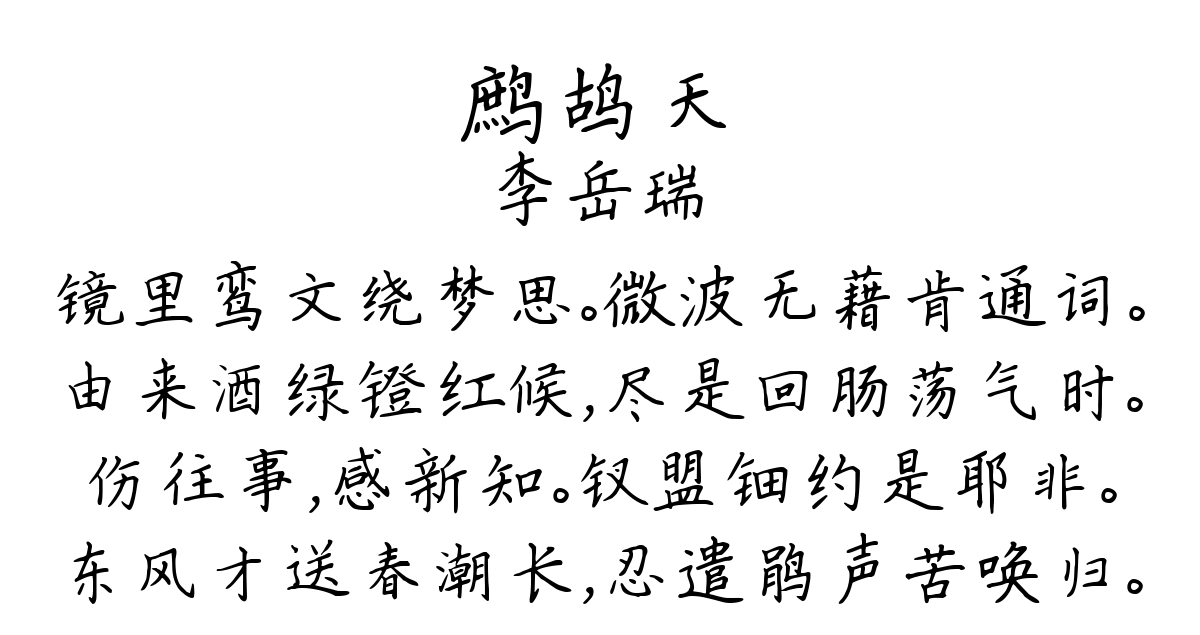 鹧鸪天
李岳瑞
镜里鸾文绕梦思。微波无藉肯通词。
由来酒绿镫红候,尽是回肠荡气时。
伤往事,感新知。钗盟钿约是耶非。
东风才送春潮长,忍遣鹃声苦唤归。